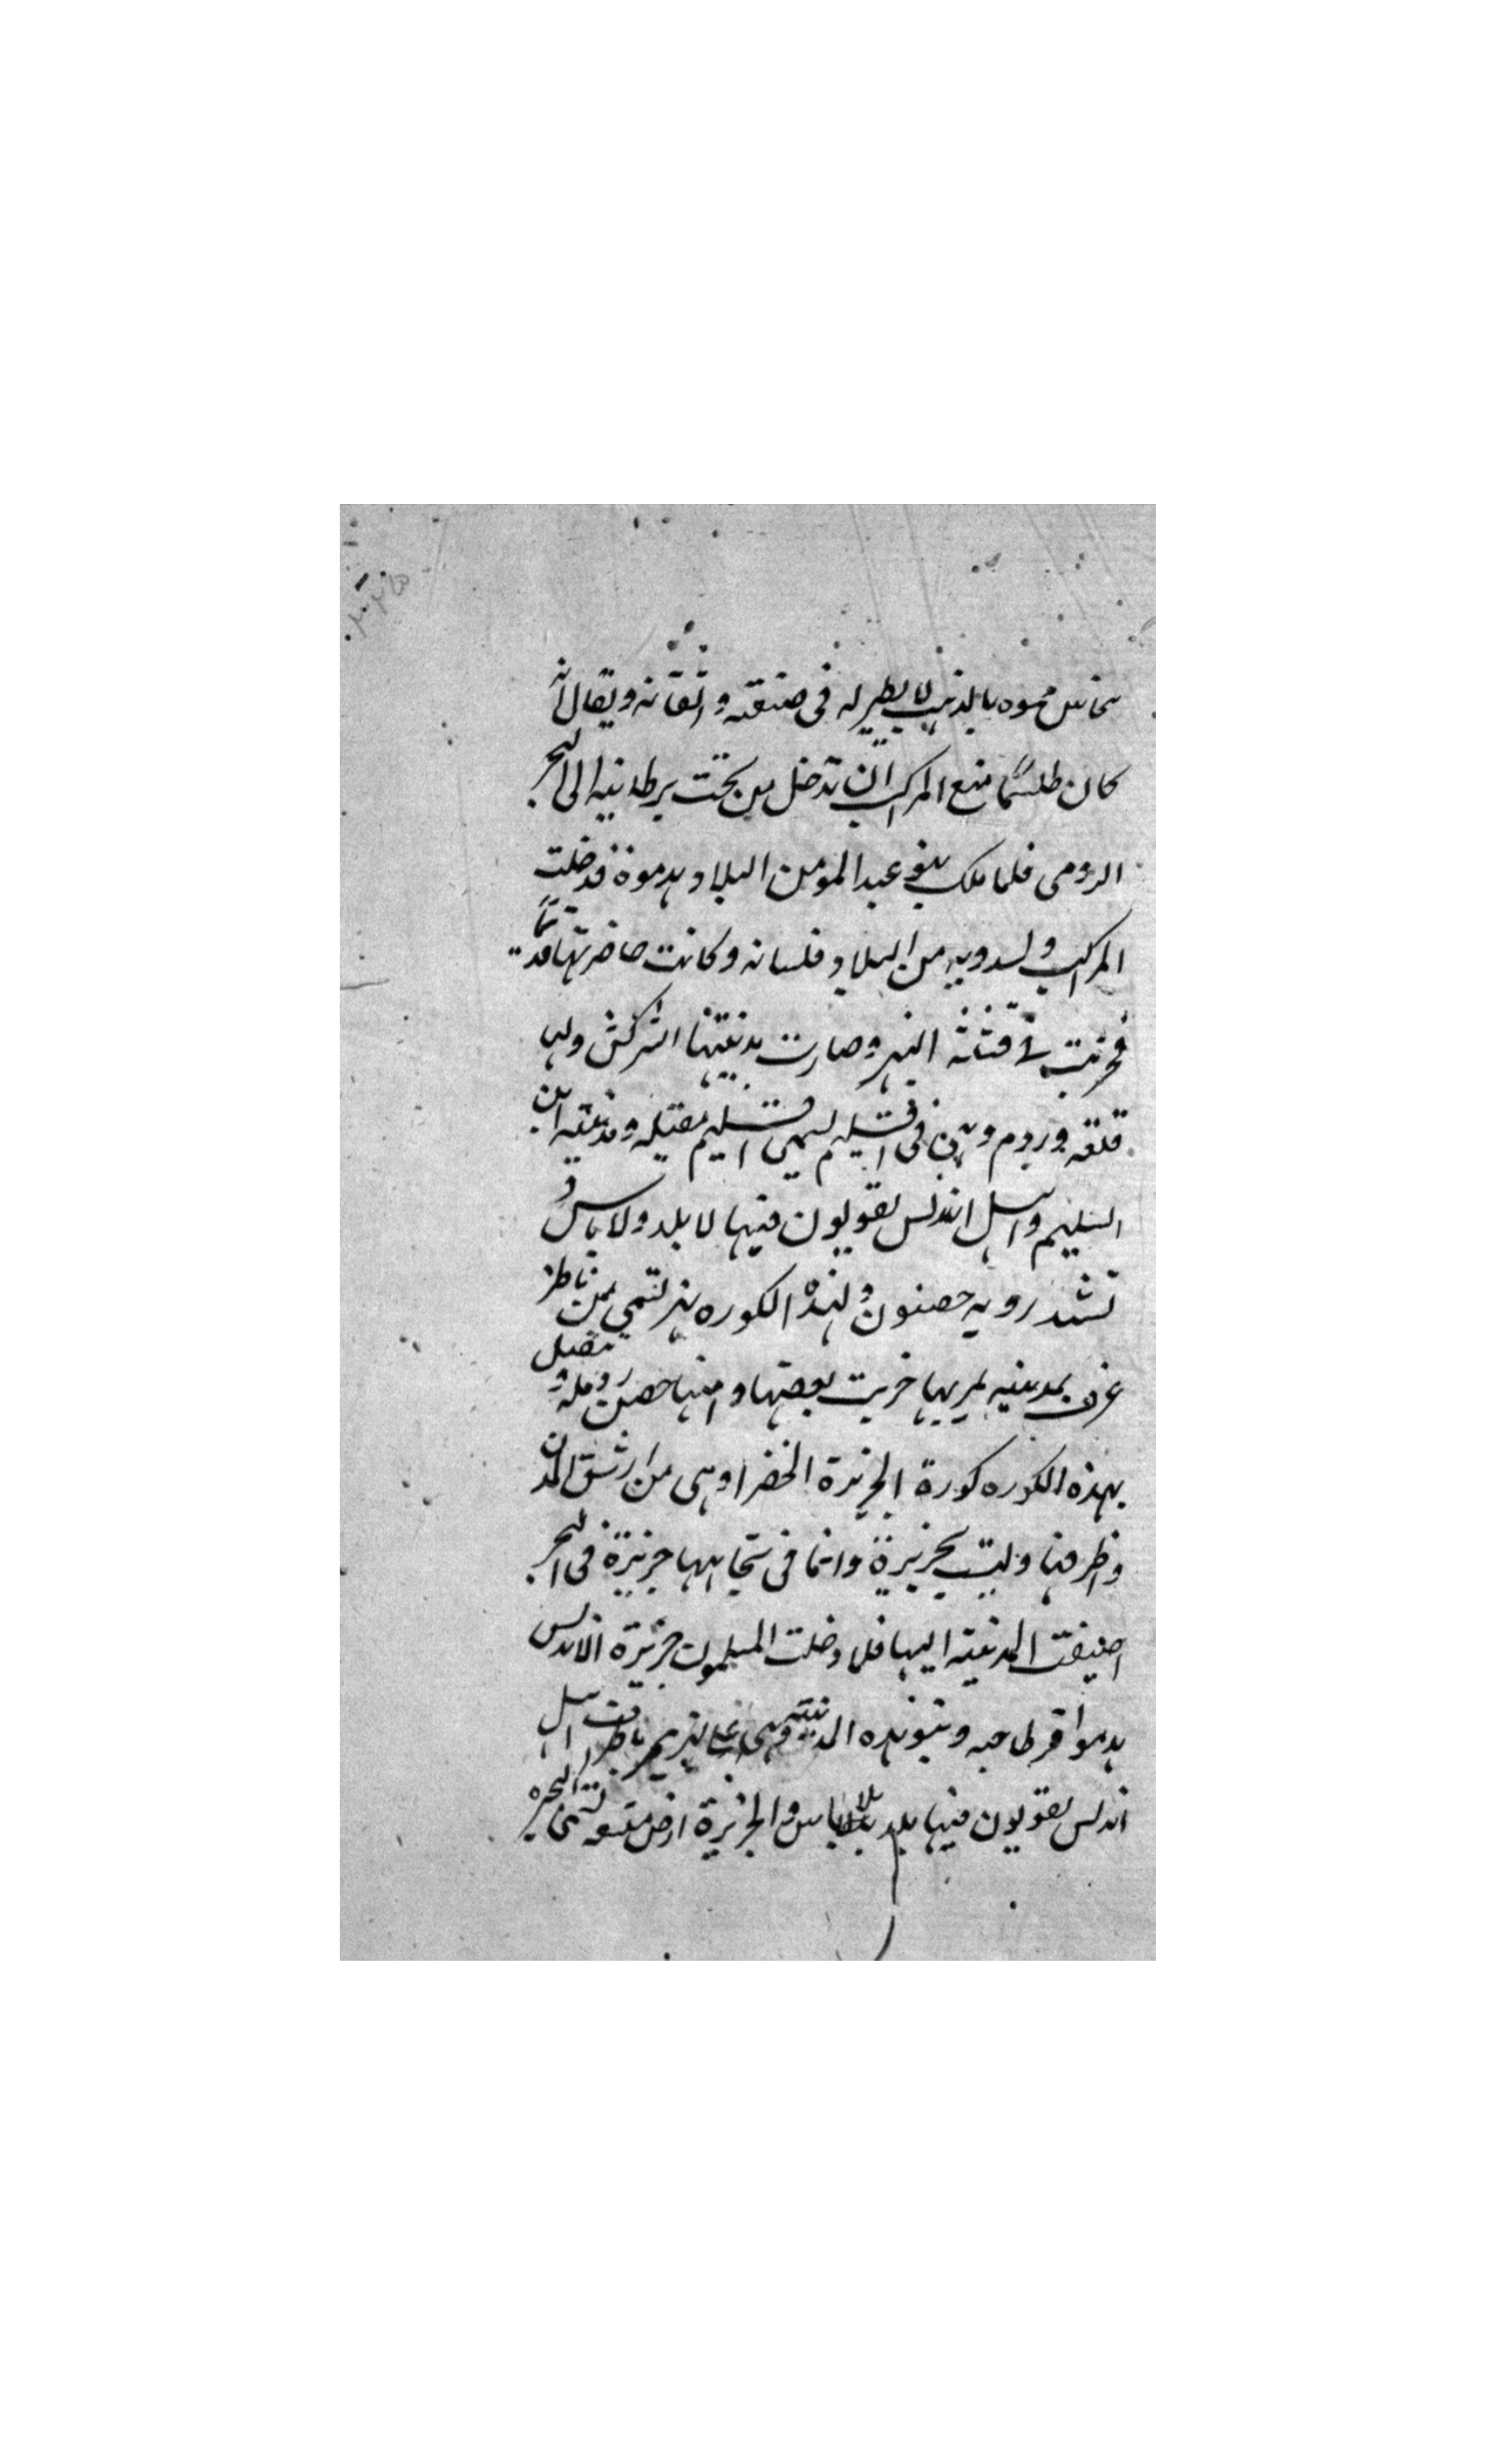 نحاس مموه بالذهب لا نظير له فى صنعته و اتقانه ويقال انه
كان طلسما منع المراكب ان تدخل من تحت برطانيه الى البحر
الرومى فلما ملك بنو عبد المومن البلاد هدموه فدخلت
المراكب ولسدويه من البلاد قلسانه وكانت حاضرتها قديمًا
فخربت فتنة البربر وصارت مدينتها الشركش ولها
قلعه وردم فى اقليم يسمى اقليم مغيله ومدينه ابن
السليم واهل اندلس يقولون فيها لا بلد ولا باس و
تشدرويه حصنون ولهذه الكوره نهر يسمى بمن ناظر
عرف بمدينيه خربت بعضها و منها حصن روطه و متصل
بهذه الكوره كورة الجزيرة الخضرا وهى من ارشق المدن
واظرفها وليست بجزيرة وانما فى تجاهها جزيرة فى البحر
اضيفت المدينه اليها فلما دخلت المسلمون جزيرة الاندلس
هدموا قرطاجنه وبنو هذه المدينة وهى اهل
اندلس يقولون فيها بلد بلا باس والجزيرة ارض متسعه تسمى البحيره